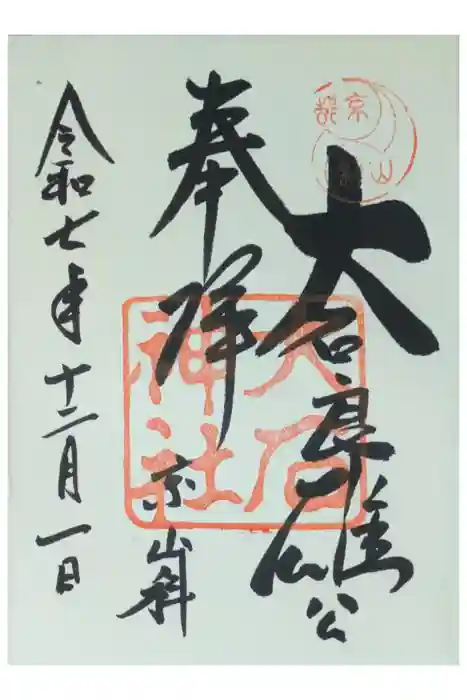 京都山
大石良雄公
奉拝
京山科
大石神社
令和七年十二月一日